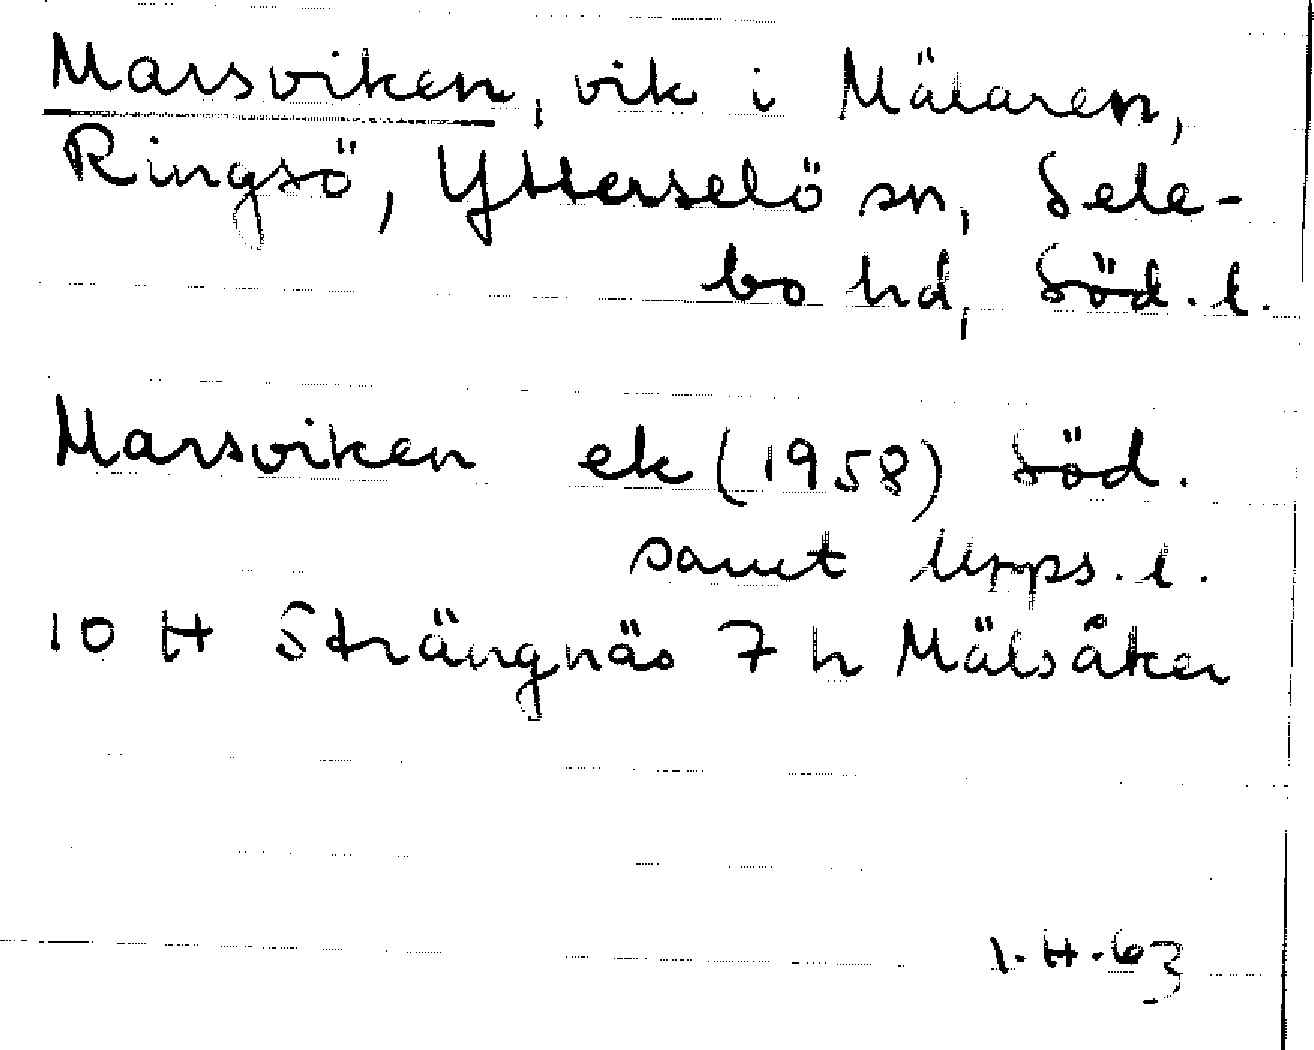 Marsviken, vik i Mälaren,
Ringsö, Ytterselö sn, Sele-
bo hd, Söd. l.
Marsviken ek (1958) Söd.
samt Upps. l.
10 H Strängnäs 7 h Mälsåker
1. H. 63